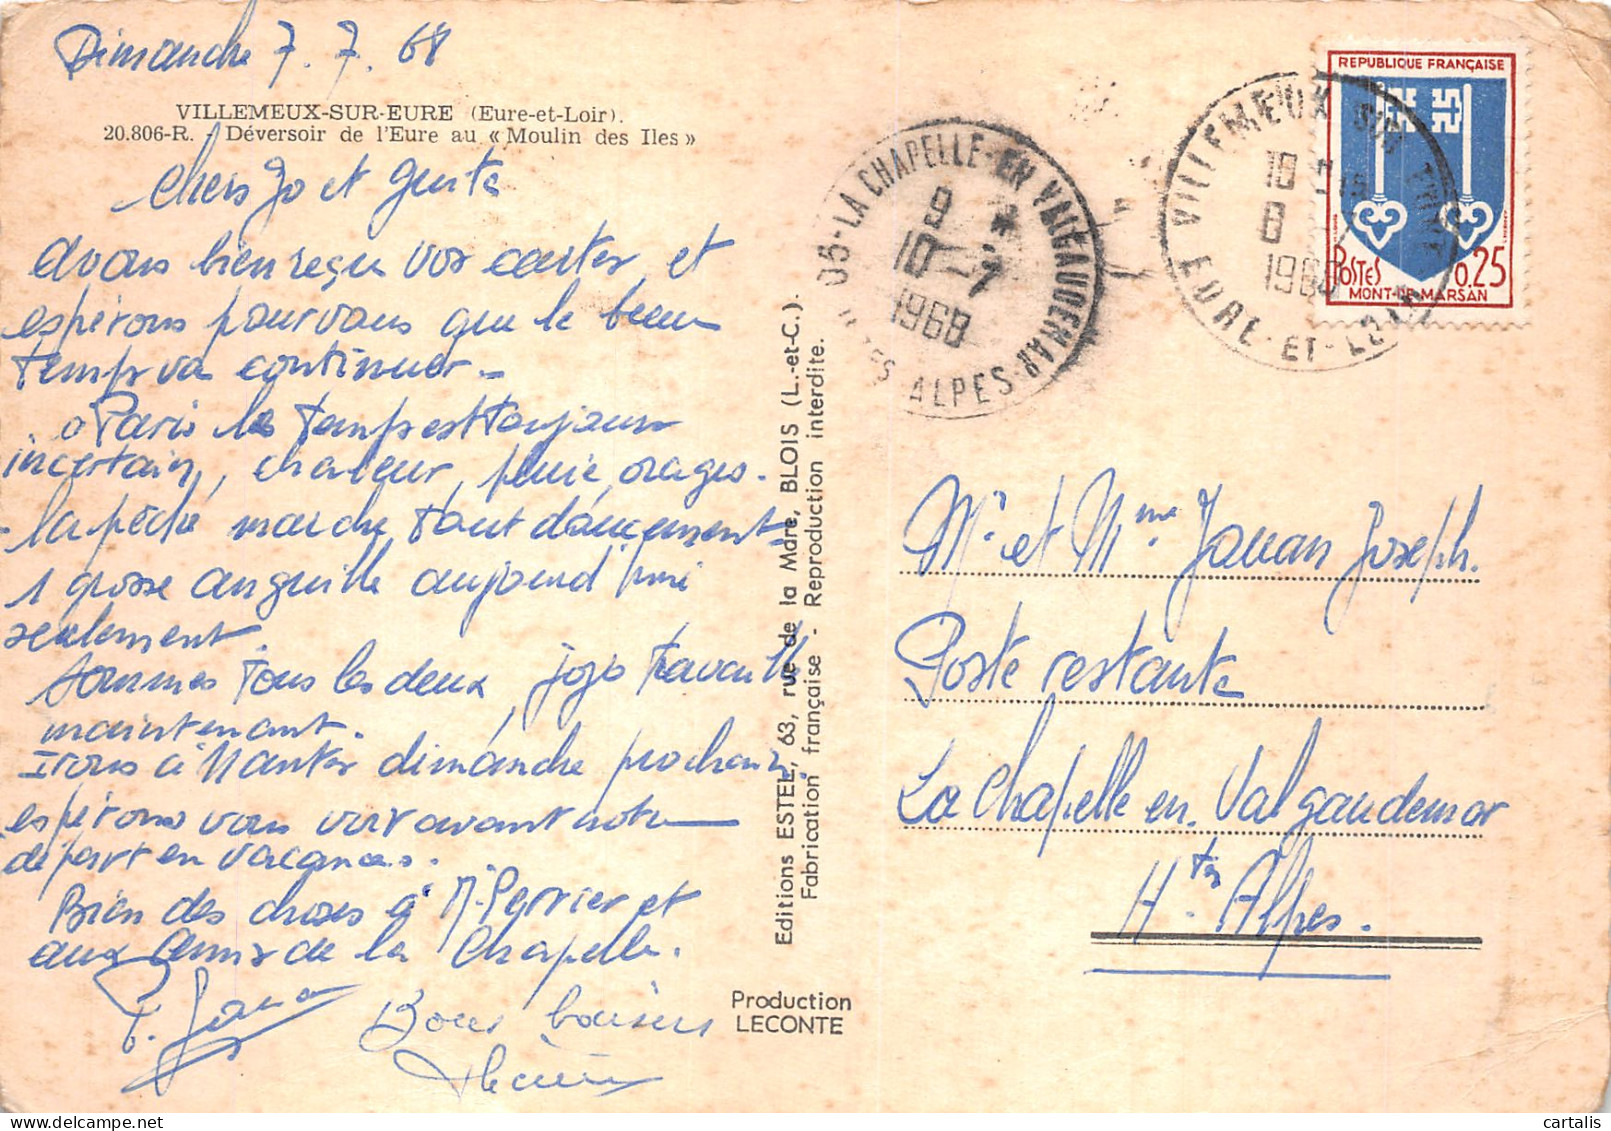 Dimanche 7.7.68
VILLEMEUX-SUR-EURE (Eure-et-Loir).
20.806-R. - Déversoir de l'Eure au « Moulin des Iles »
Chers Jo et
avons bien reçu vos cartes et
espérons pour vous que le beau
temps va continuer -
a Paris le temps est toujours
incertain, chaleur, pluie, orages.
- la pêche marche tout doucement -
1 grosse anguille aujourd'hui
seulement.
sommes tous les deux, jojo travaille
maintenant.
Irons à Nantes dimanche prochain.
espérons vous voir avant notre
départ en vacances.
Bien des choses à M. Perrier et
aux amis de la Chapelle.
Bons baisers
Editions ESTEL, 63, rue de la Mare, BLOIS (L.-et-C.).
Fabrication française - Reproduction interdite.
Production
LECONTE
05-LA CHAPELLE-EN VALGAUDEMAR
9 *
10-7
1968
HTES ALPES
VILLEMEUX SUR EURE
18 H
8 -7
1968
EURE-ET-LOIR
REPUBLIQUE FRANÇAISE
POSTES 0.25
MONT-DE-MARSAN
Mr et Mme Jouan Joseph.
Poste restante
La Chapelle en Valgaudemar
Htes Alpes.